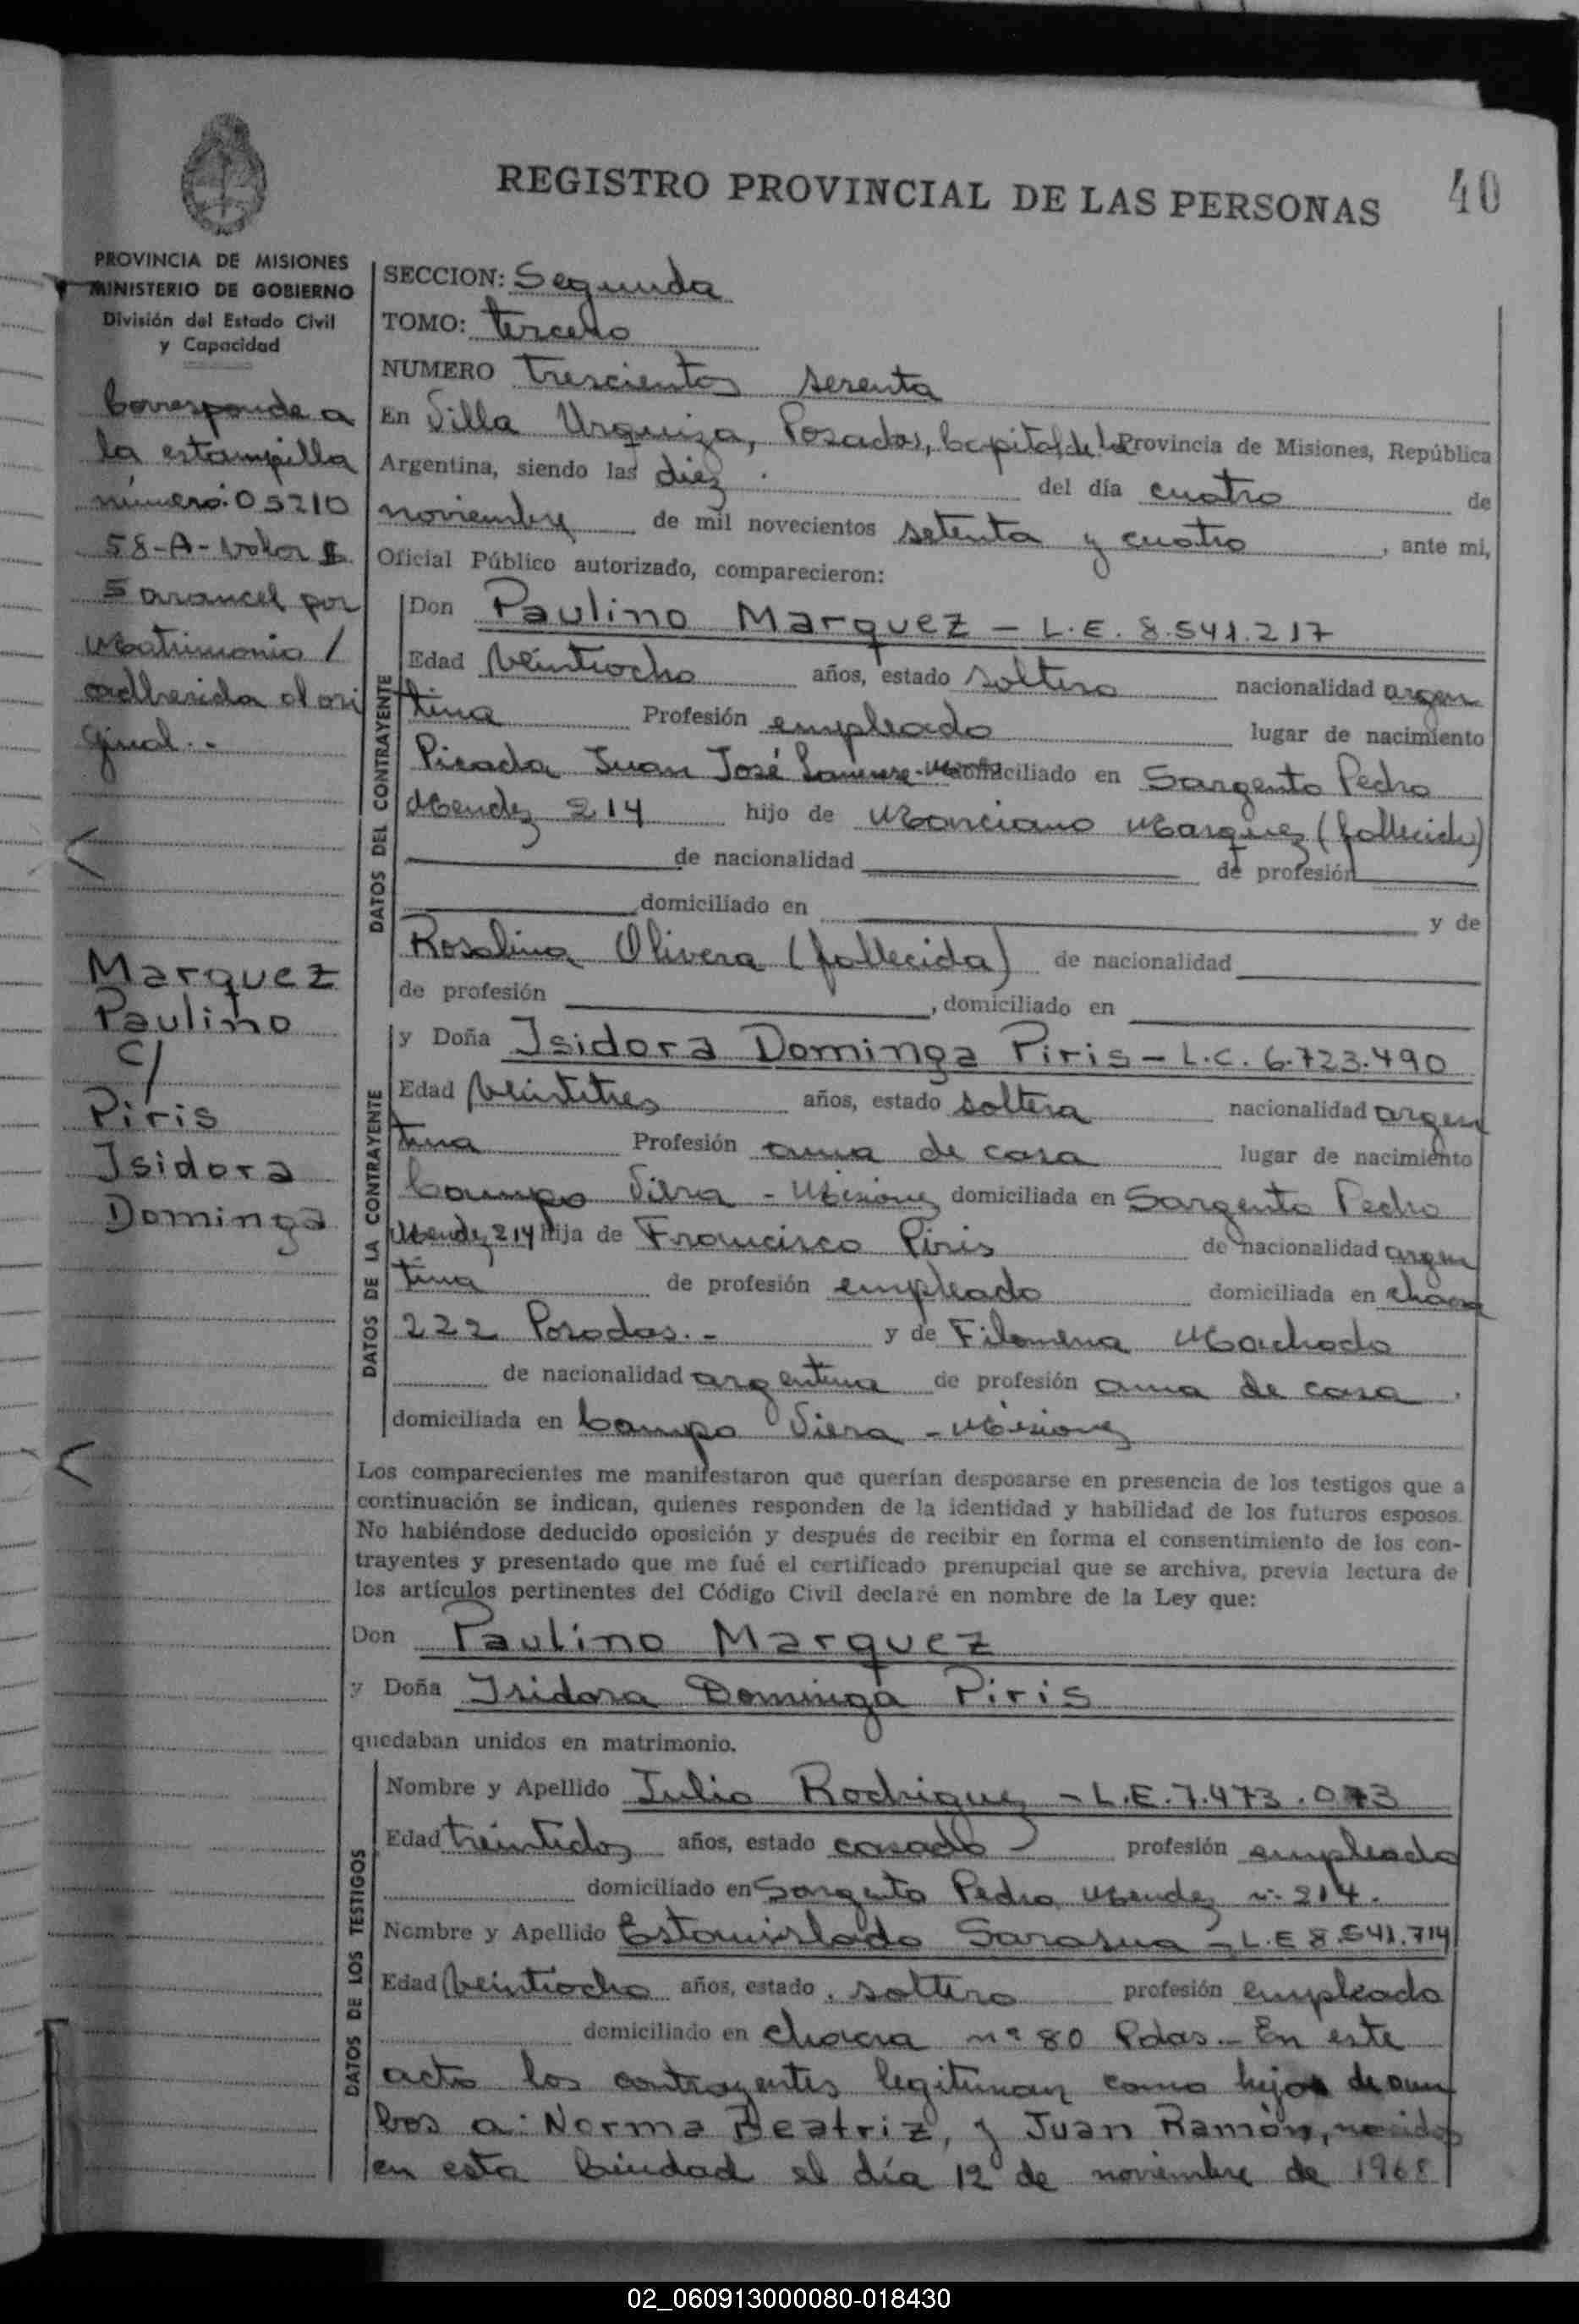 REGISTRO PROVINCIAL DE LAS PERSONAS 40
PROVINCIA DE MISIONES
MINISTERIO DE GOBIERNO
División del Estado Civil
y Capacidad
Corresponde a
la estampilla
número: 05210
58-A- Valor $
5 arancel por
Matrimonio /
adherida al ori
ginal.-
Marquez
Paulino
c/
Piris
Isidora
Dominga
SECCION: Segunda
TOMO: tercero
NUMERO trescientos sesenta
En Villa Urquiza, Posadas, Capital de la Provincia de Misiones, República
Argentina, siendo las diez del día cuatro de
noviembre de mil novecientos setenta y cuatro, ante mi,
Oficial Público autorizado, comparecieron:
DATOS DEL CONTRAYENTE
Don Paulino Marquez - L.E. 8.541.217
Edad veintiocho años, estado soltero nacionalidad argen
tina Profesión empleado lugar de nacimiento
Picada Juan José domiciliado en Sargento Pedro
Mendez 214 hijo de Marciano Marquez (fallecido)
de nacionalidad de profesión
domiciliado en y de
Rosalina Olivera (fallecida) de nacionalidad
de profesión , domiciliado en
DATOS DE LA CONTRAYENTE
y Doña Isidora Dominga Piris - L.C. 6.723.490
Edad veintitres años, estado soltera nacionalidad argen
tina Profesión ama de casa lugar de nacimiento
Campo Viera - Misiones domiciliada en Sargento Pedro
Mendez 214 hija de Francisco Piris de nacionalidad argen
tina de profesión empleado domiciliada en chacra
222 Posadas.- y de Filomena Machado
de nacionalidad argentina de profesión ama de casa
domiciliada en Campo Viera - Misiones
Los comparecientes me manifestaron que querían desposarse en presencia de los testigos que a
continuación se indican, quienes responden de la identidad y habilidad de los futuros esposos.
No habiéndose deducido oposición y después de recibir en forma el consentimiento de los con-
trayentes y presentado que me fué el certificado prenupcial que se archiva, previa lectura de
los artículos pertinentes del Código Civil declaré en nombre de la Ley que:
Don Paulino Marquez
y Doña Isidora Dominga Piris
quedaban unidos en matrimonio.
DATOS DE LOS TESTIGOS
Nombre y Apellido Julio Rodriguez - L.E. 7.473.073
Edad treintidos años, estado casado profesión empleado
domiciliado en Sargento Pedro Mendez n: 214.
Nombre y Apellido Estanislado Sarasua - L.E 8.541.714
Edad veintiocho años, estado soltero profesión empleado
domiciliado en chacra nº 80 Pdas.- En este
acto los contrayentes legitiman como hijos de am
bos a: Norma Beatriz, y Juan Ramón, nacidos
en esta Ciudad el día 12 de noviembre de 1968
02_060913000080-018430